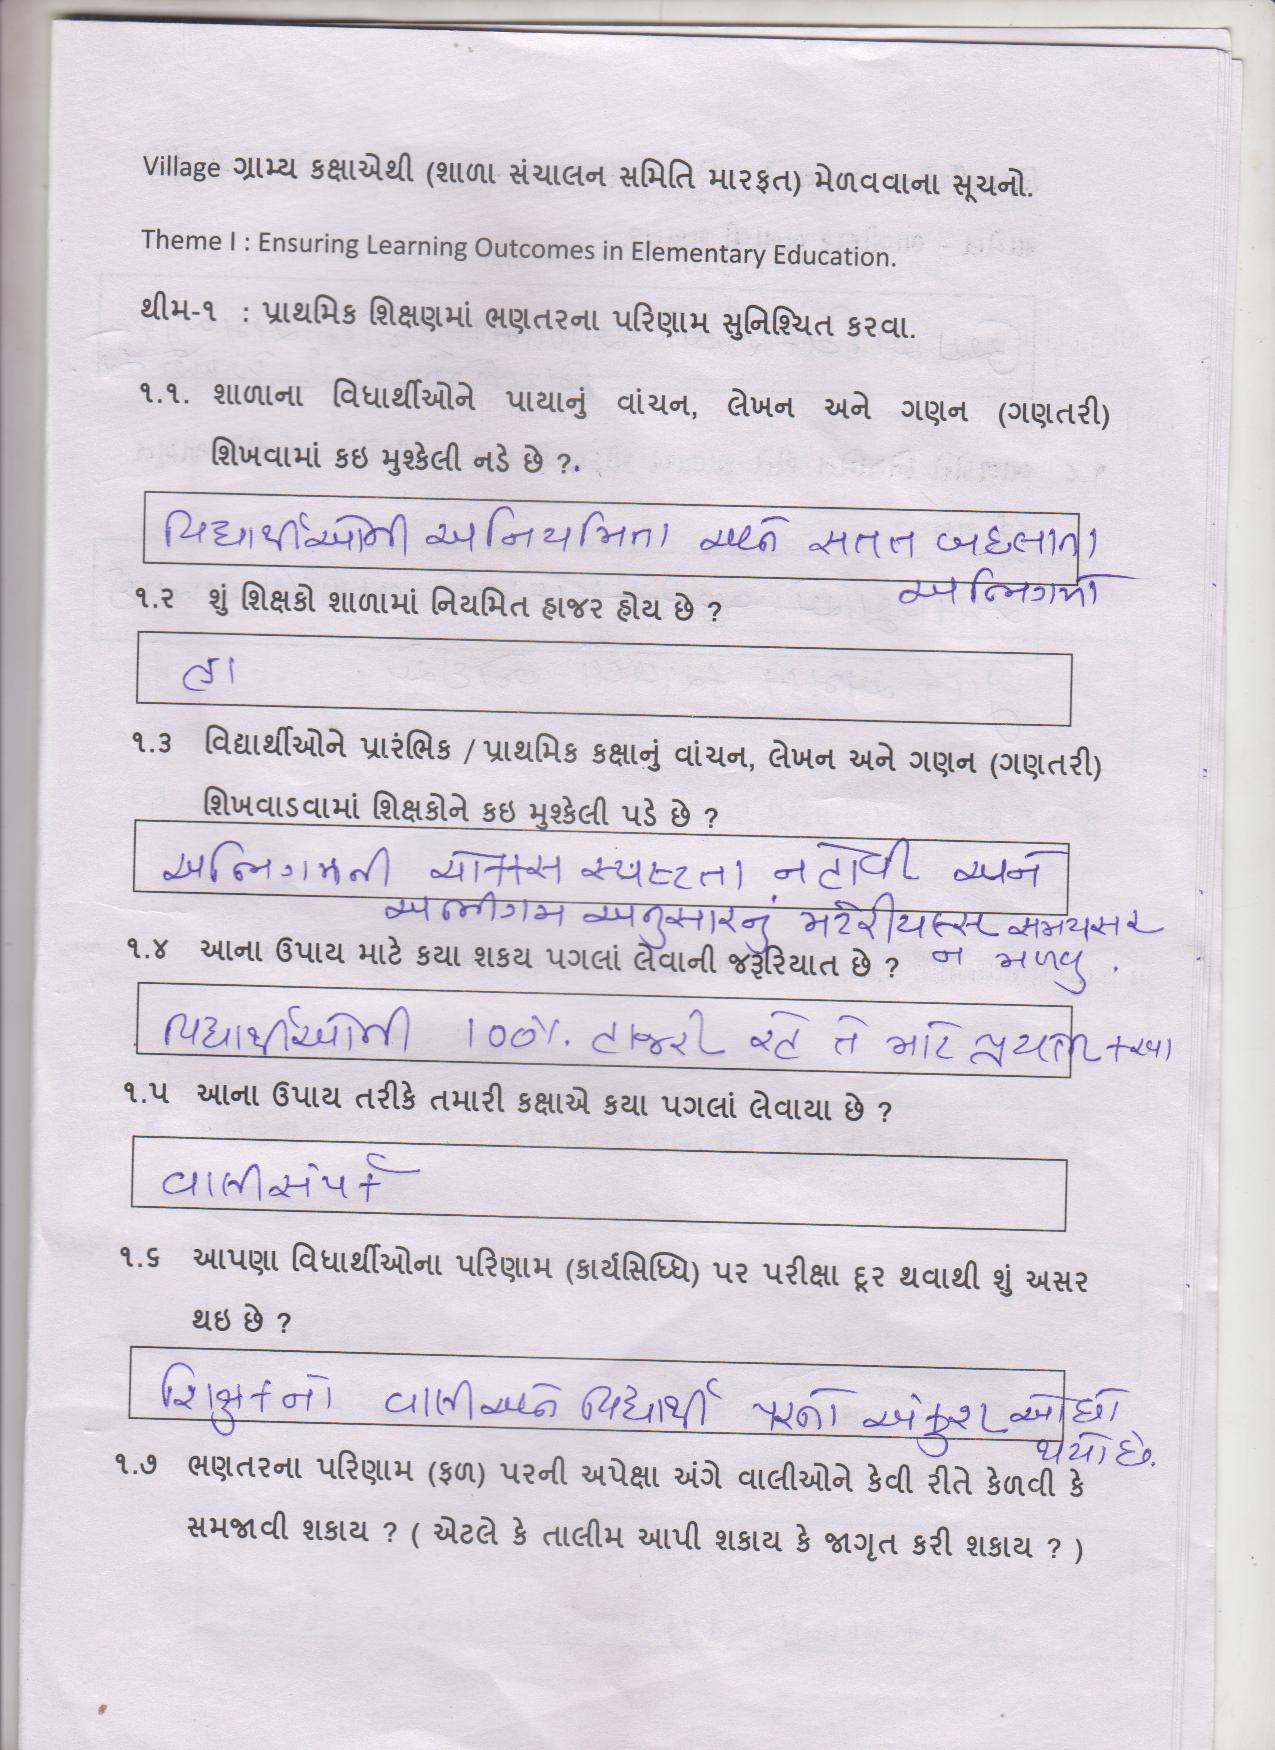 Village ગ્રામ્ય કક્ષાએથી (શાળા સંચાલન સમિતિ મારફત) મેળવવાના સૂચનો.
Theme I : Ensuring Learning Outcomes in Elementary Education.
થીમ-૧ : પ્રાથમિક શિક્ષણમાં ભણતરના પરિણામ સુનિશ્ચિત કરવા.
૧.૧. શાળાના વિધાર્થીઓને પાયાનું વાંચન, લેખન અને ગણન (ગણતરી)
શિખવામાં કઇ મુશ્કેલી નડે છે ?.
વિદ્યાર્થીઓની અનિયમિતા અને સતત બદલાતા
અભિગમો
૧.૨ શું શિક્ષકો શાળામાં નિયમિત હાજર હોય છે ?
હા
૧.૩ વિદ્યાર્થીઓને પ્રારંભિક / પ્રાથમિક કક્ષાનું વાંચન, લેખન અને ગણન (ગણતરી)
શિખવાડવામાં શિક્ષકોને કઇ મુશ્કેલી પડે છે ?
અભિગમની ચોક્કસ સ્પષ્ટતા ન હોવી અને
અભીગમ અનુસારનું મટેરીયલ્સ સમયસર
૧.૪ આના ઉપાય માટે કયા શકય પગલાં લેવાની જરૂરિયાત છે ? ન મળવુ .
વિદ્યાર્થીઓની 100%. હાજરી રહે તે માટે પ્રયત્નો કરવા
૧.૫ આના ઉપાય તરીકે તમારી કક્ષાએ કયા પગલાં લેવાયા છે ?
વાલીસંપર્ક
૧.૬ આપણા વિધાર્થીઓના પરિણામ (કાર્યસિધ્ધિ) પર પરીક્ષા દૂર થવાથી શું અસર
થઇ છે ?
શિક્ષકનો વાલી અને વિદ્યાર્થી પરનો અંકુશ ઓછો
થયો છે.
૧.૭ ભણતરના પરિણામ (ફળ) પરની અપેક્ષા અંગે વાલીઓને કેવી રીતે કેળવી કે
સમજાવી શકાય ? ( એટલે કે તાલીમ આપી શકાય કે જાગૃત કરી શકાય ? )